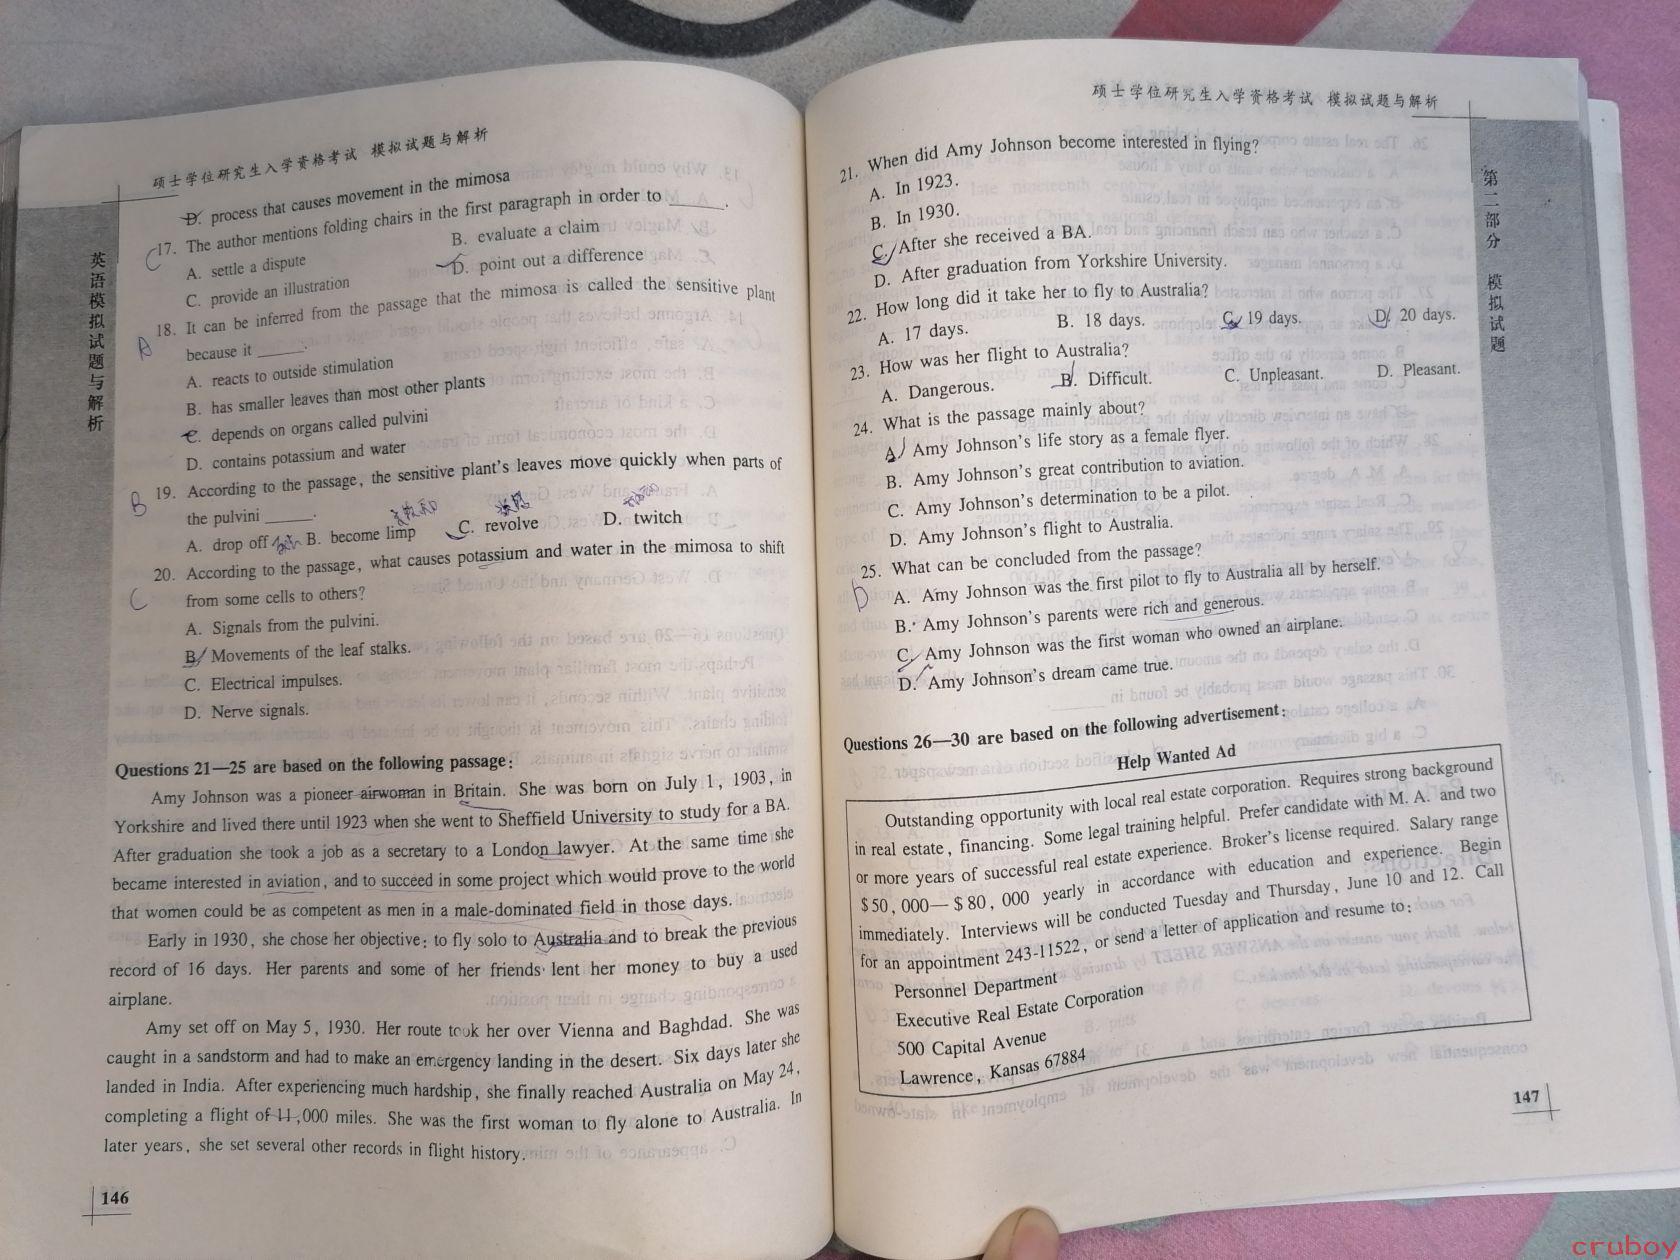 硕士学位研究生入学资格考试 模拟试题与解析
英语模拟试题与解析
D. process that causes movement in the mimosa
C 17. The author mentions folding chairs in the first paragraph in order to ______.
A. settle a dispute B. evaluate a claim
C. provide an illustration D. point out a difference
A 18. It can be inferred from the passage that the mimosa is called the sensitive plant
because it ______.
A. reacts to outside stimulation
B. has smaller leaves than most other plants
C. depends on organs called pulvini
D. contains potassium and water
B 19. According to the passage, the sensitive plant's leaves move quickly when parts of
the pulvini ______.
A. drop off B. become limp C. revolve D. twitch
C 20. According to the passage, what causes potassium and water in the mimosa to shift
from some cells to others?
A. Signals from the pulvini.
B. Movements of the leaf stalks.
C. Electrical impulses.
D. Nerve signals.
Questions 21—25 are based on the following passage:
Amy Johnson was a pioneer airwoman in Britain. She was born on July 1, 1903, in
Yorkshire and lived there until 1923 when she went to Sheffield University to study for a BA.
After graduation she took a job as a secretary to a London lawyer. At the same time she
became interested in aviation, and to succeed in some project which would prove to the world
that women could be as competent as men in a male-dominated field in those days.
Early in 1930, she chose her objective: to fly solo to Australia and to break the previous
record of 16 days. Her parents and some of her friends lent her money to buy a used
airplane.
Amy set off on May 5, 1930. Her route took her over Vienna and Baghdad. She was
caught in a sandstorm and had to make an emergency landing in the desert. Six days later she
landed in India. After experiencing much hardship, she finally reached Australia on May 24,
completing a flight of 11,000 miles. She was the first woman to fly alone to Australia. In
later years, she set several other records in flight history.
146
硕士学位研究生入学资格考试 模拟试题与解析
第二部分 模拟试题
21. When did Amy Johnson become interested in flying?
A. In 1923.
B. In 1930.
C. After she received a BA.
D. After graduation from Yorkshire University.
22. How long did it take her to fly to Australia?
A. 17 days. B. 18 days. C. 19 days. D. 20 days.
23. How was her flight to Australia?
A. Dangerous. B. Difficult. C. Unpleasant. D. Pleasant.
24. What is the passage mainly about?
A. Amy Johnson's life story as a female flyer.
B. Amy Johnson's great contribution to aviation.
C. Amy Johnson's determination to be a pilot.
D. Amy Johnson's flight to Australia.
D 25. What can be concluded from the passage?
A. Amy Johnson was the first pilot to fly to Australia all by herself.
B. Amy Johnson's parents were rich and generous.
C. Amy Johnson was the first woman who owned an airplane.
D. Amy Johnson's dream came true.
Questions 26—30 are based on the following advertisement:
Help Wanted Ad
Outstanding opportunity with local real estate corporation. Requires strong background
in real estate, financing. Some legal training helpful. Prefer candidate with M. A. and two
or more years of successful real estate experience. Broker's license required. Salary range
$50, 000—$80, 000 yearly in accordance with education and experience. Begin
immediately. Interviews will be conducted Tuesday and Thursday, June 10 and 12. Call
for an appointment 243-11522, or send a letter of application and resume to:
Personnel Department
Executive Real Estate Corporation
500 Capital Avenue
Lawrence, Kansas 67884
147
cruboy